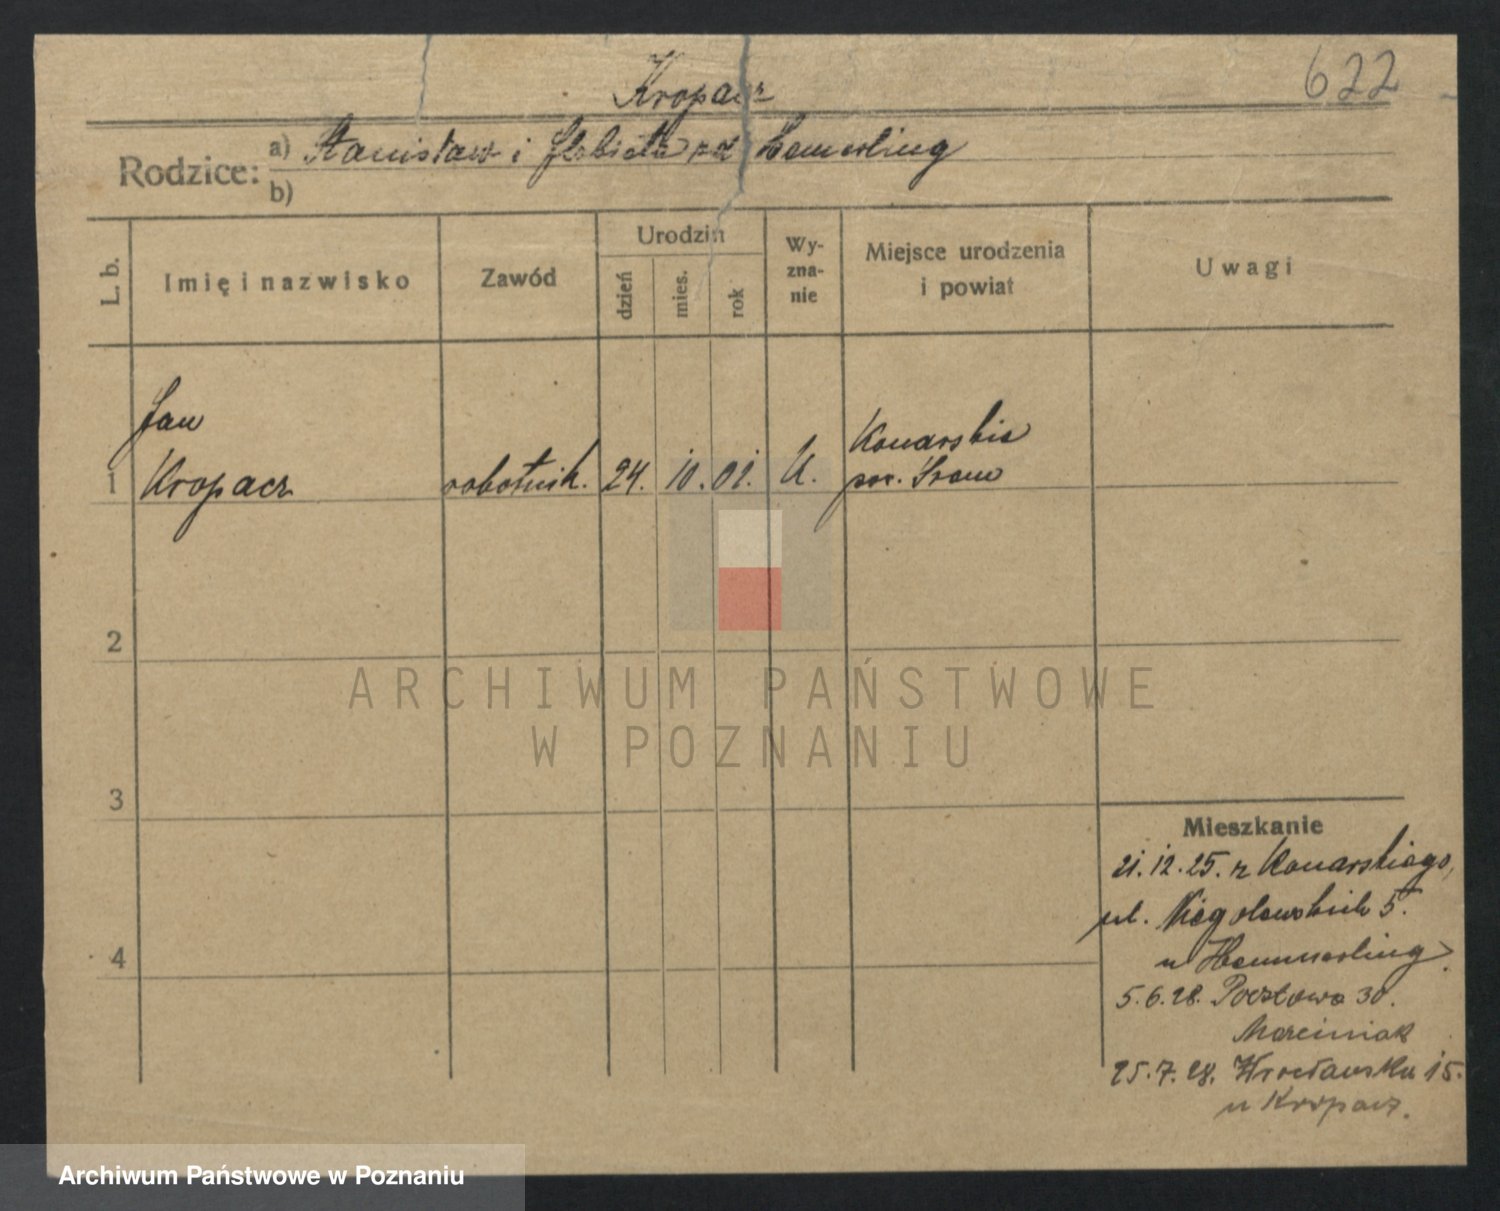 622
Kropacz
Rodzice:
a) Stanisław i Elżbieta zd Hemerling
b)
L. b.
Imię i nazwisko
Zawód
Urodzin
dzień
mies.
rok
Wy-
zna-
nie
Miejsce urodzenia
i powiat
Uwagi
Jan
1 Kropacz
robotnik.
24.
10.
01.
K.
Konarskie
pow. Śrem
2
3
4
Mieszkanie
21.12.25. z Konarskiego,
ul. Niegolewskich 5.
u Hemmerling
5.6.28. Pocztowa 30.
Marciniak
25.7.28. Wrocławska 15.
u Kropacz.
ARCHIWUM PAŃSTWOWE
W POZNANIU
Archiwum Państwowe w Poznaniu